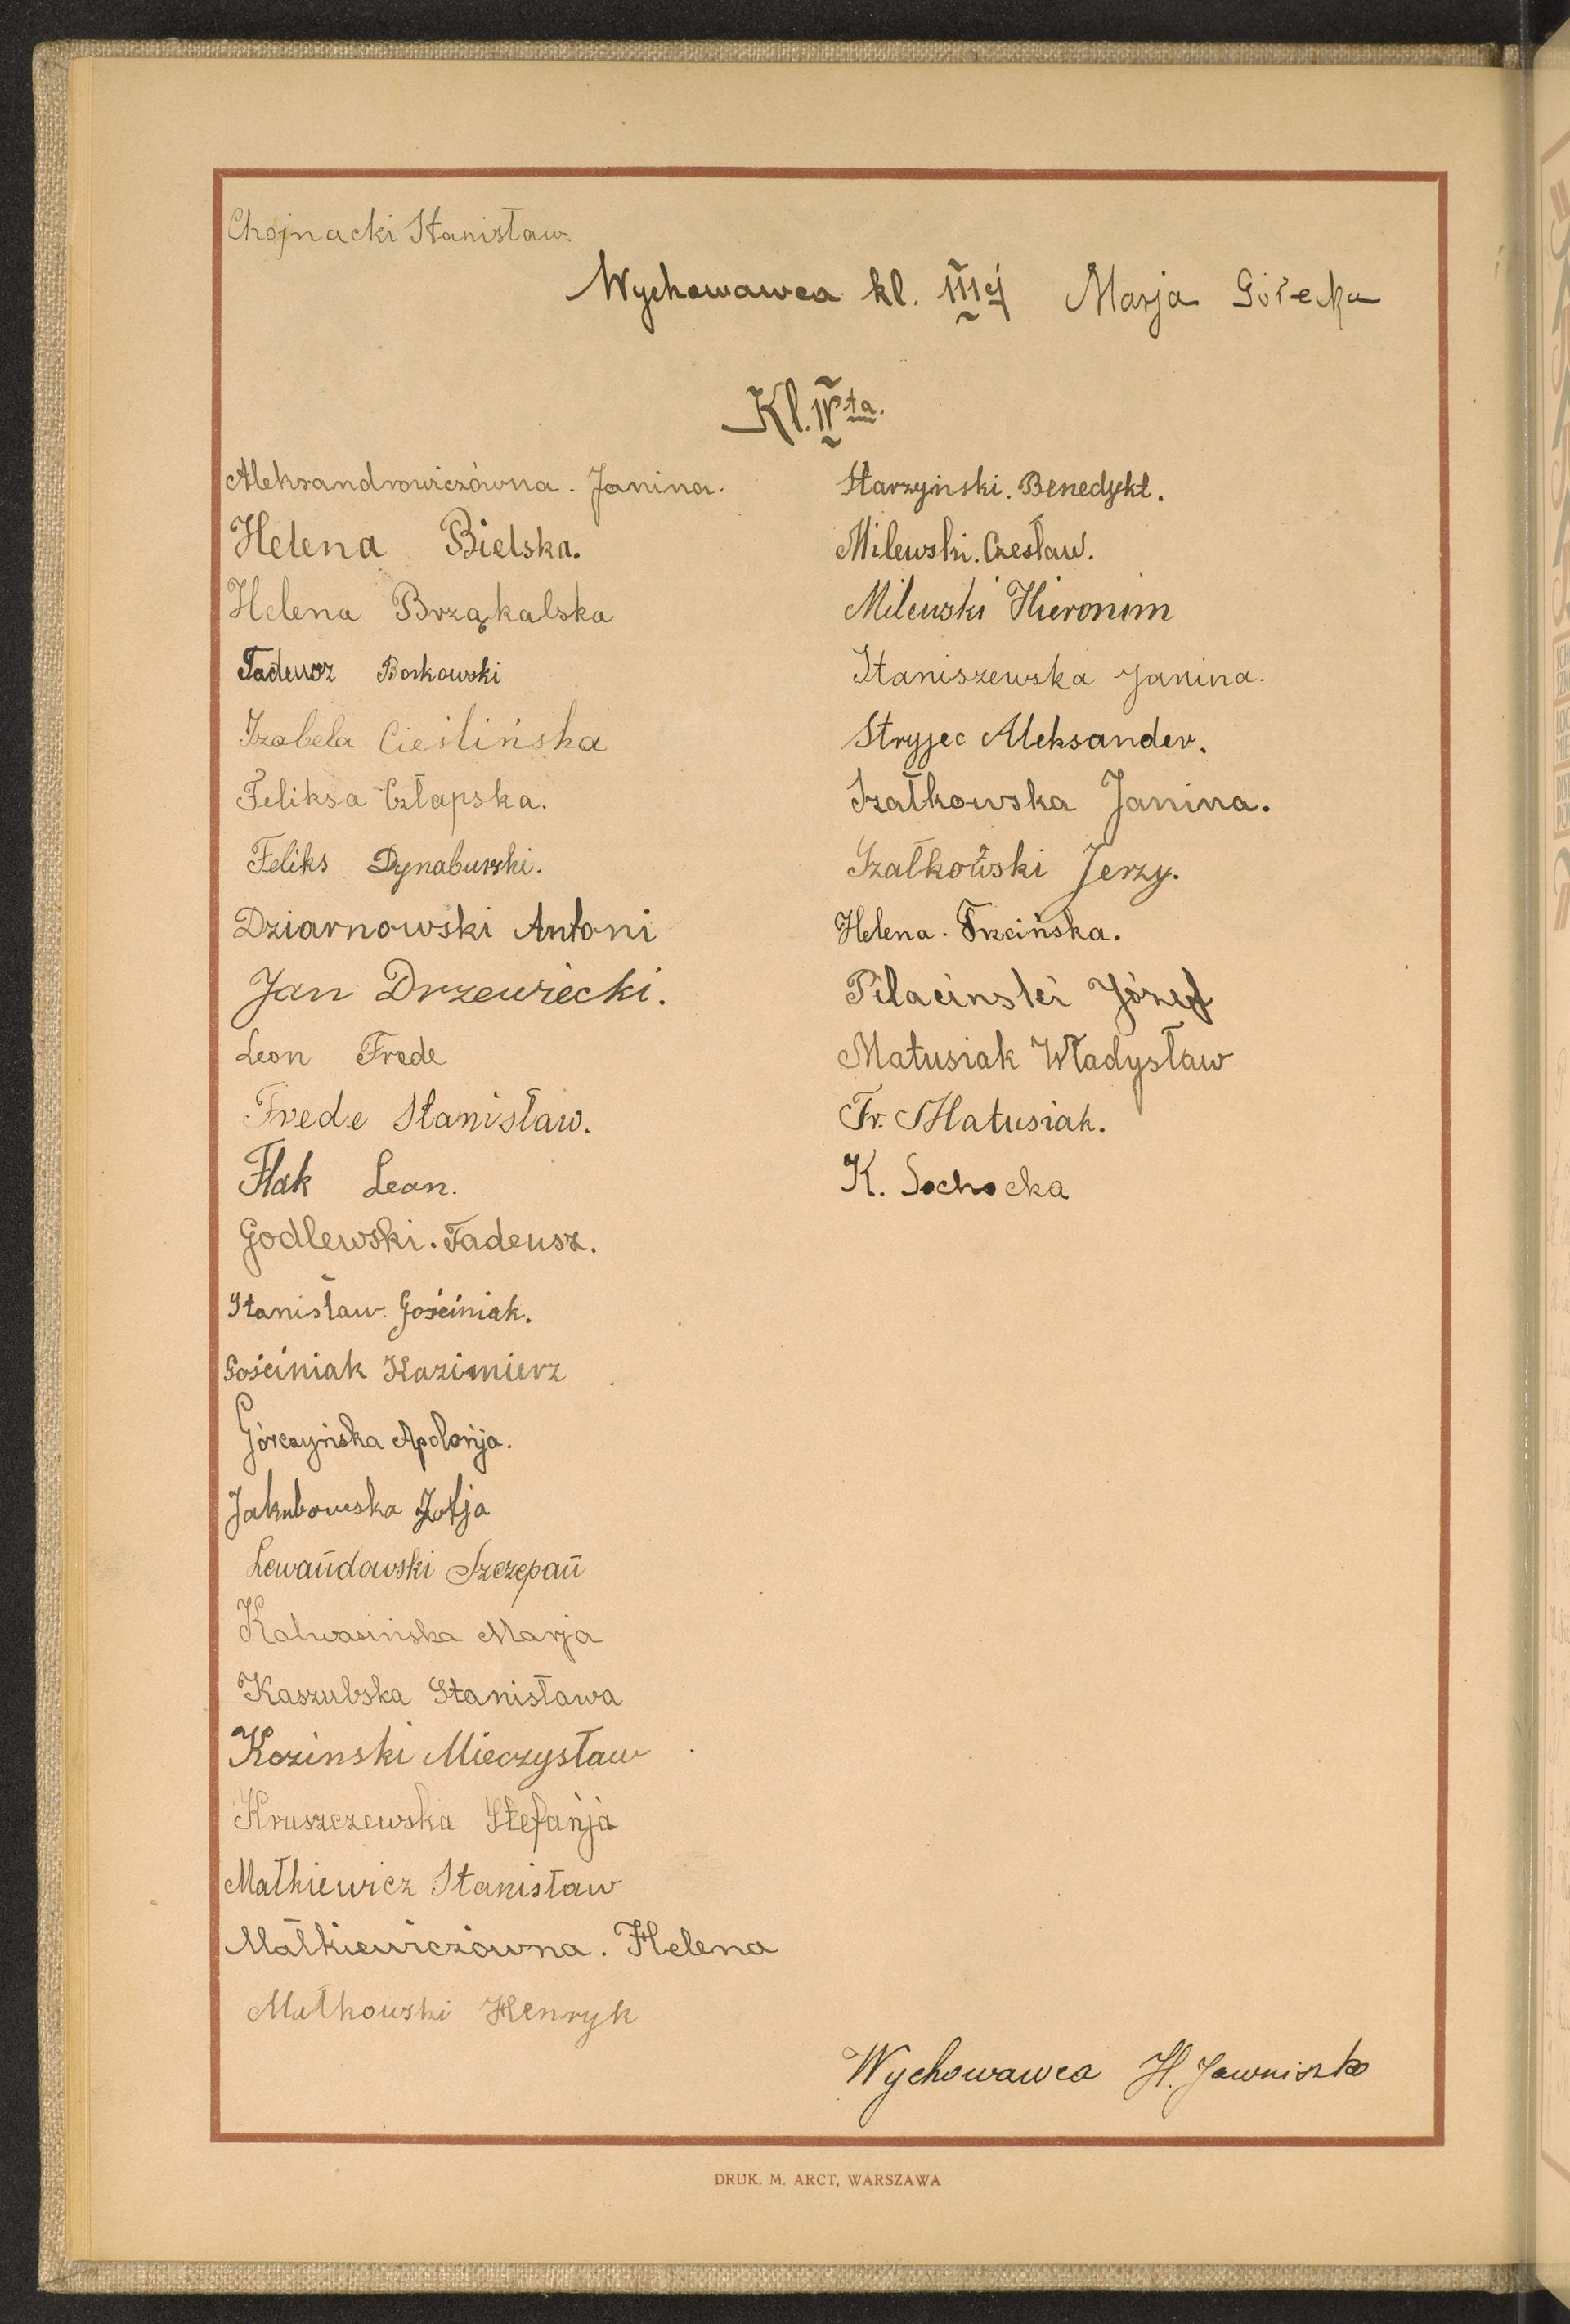 Chojnacki Stanisław.
Wychowawca kl. IIIej Marja Górecka
Kl. IVta.
Aleksandrowiczówna. Janina.
Helena Bielska.
Helena Brząkalska
Tadeusz Borkowski
Izabela Cieślińska
Feliksa Człapska.
Feliks Dynaburski.
Dziarnowski Antoni
Jan Drzewiecki.
Leon Frede
Frede Stanisław.
Flak Leon.
Godlewski. Tadeusz.
Stanisław. Gościniak.
Gościniak Kazimierz
Górczyńska Apolonja.
Jakubowska Zofja
Lewandowski Szczepan
Kalwasińska Marja
Kaszubska Stanisława
Kozinski Mieczysław
Kruszczewska Stefanja
Małkiewicz Stanisław
Małkiewiczówna. Helena
Małkowski Henryk
Starzyński. Benedykt.
Milewski. Czesław.
Milewski Hieronim
Staniszewska Janina.
Stryjec Aleksander.
Szałkowska Janina.
Szałkowski Jerzy.
Helena. Trzcińska.
Pilacinski Józef
Matusiak Władysław
Fr. Matusiak.
K. Sochocka
Wychowawca H. Jawniszko
DRUK. M. ARCT, WARSZAWA